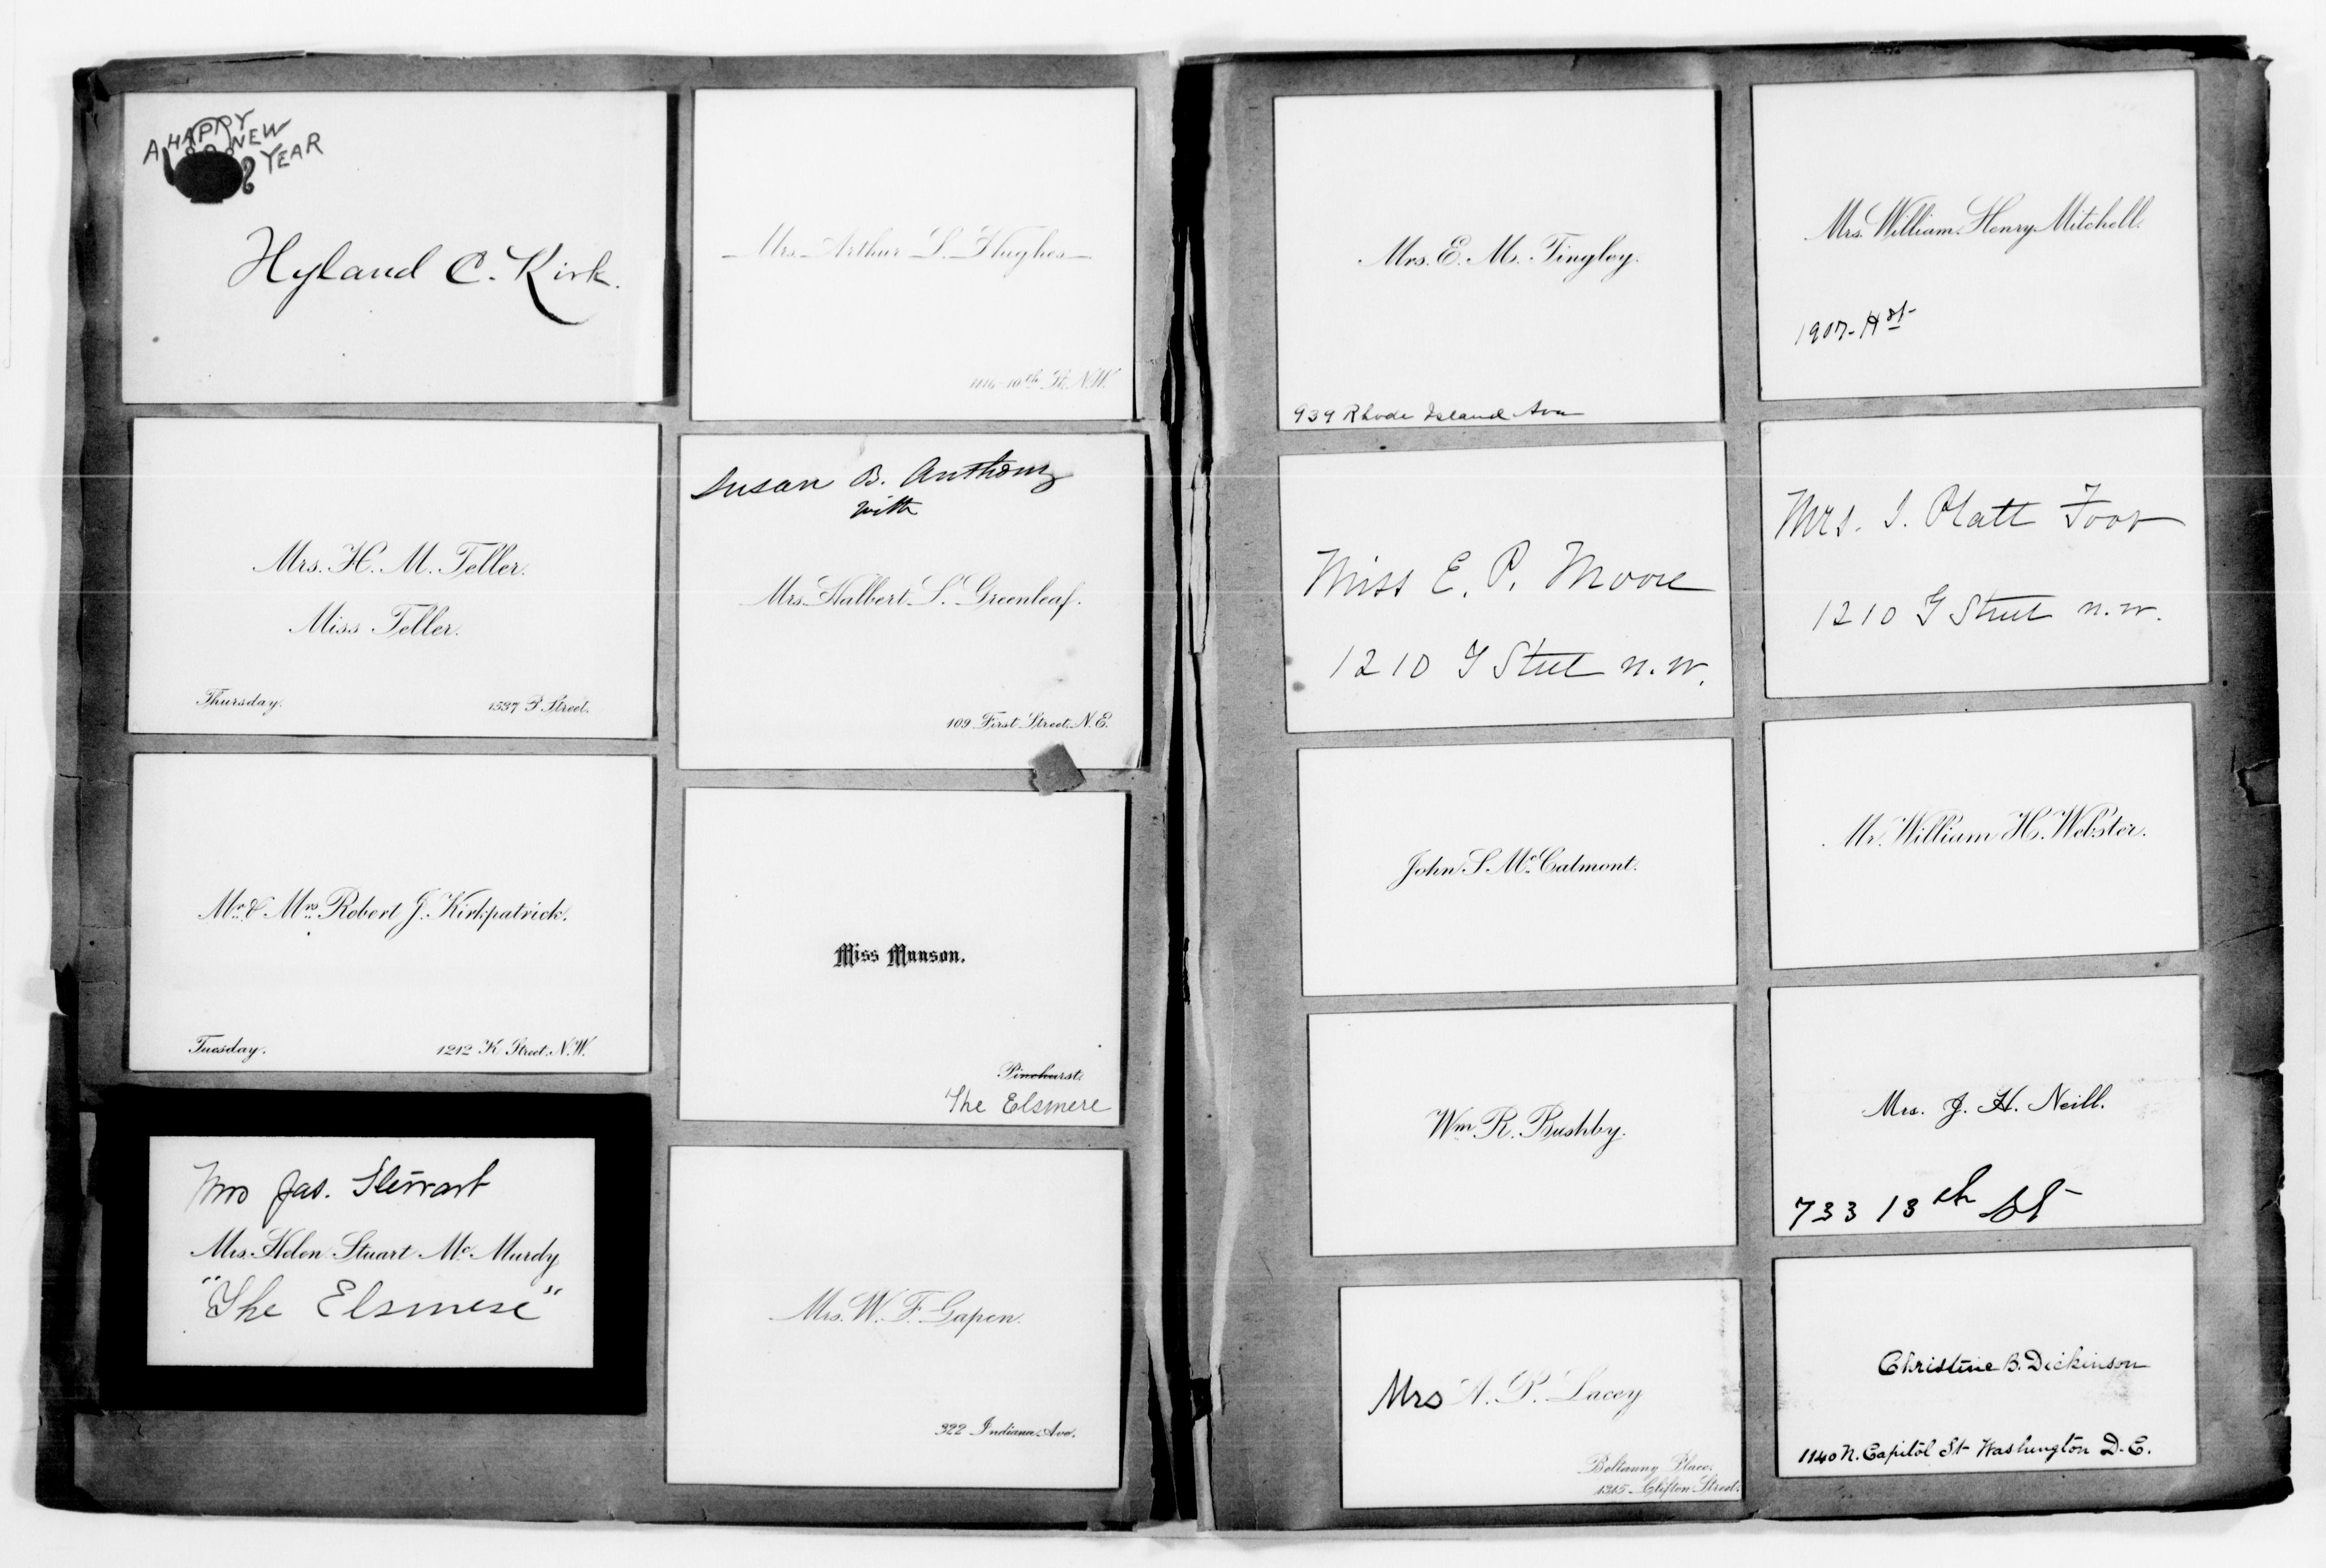 A HAPPY NEW YEAR
Hyland C. Kirk.
Mrs. H. M. Teller.
Miss Teller.
Thursday. 1537 P Street.
Mr. & Mrs. Robert J. Kirkpatrick.
Tuesday. 1212 K Street, N.W.
Mrs Jas. Stewart
Mrs. Helen Stuart Mc Murdy
"The Elsmere"
Mrs. Arthur L. Hughes
1116-10th St. N.W.
Susan B. Anthony
with
Mrs. Halbert S. Greenleaf.
109 First Street, N.E.
Miss Munson.
Pinehurst.
The Elsmere
Mrs. W. F. Gapen.
322 Indiana Ave.
Mrs. E. M. Tingley.
939 Rhode Island Ave
Miss E. P. Moore
1210 G Street N.W.
John S. Mc Calmont.
Wm R. Bushby.
Mrs A. P. Lacey
Place.
1315 Clifton Street.
Mrs. William Henry Mitchell.
1907-H St
Mrs. I. Platt Foot
1210 G Street N.W.
Mr. William H. Webster.
Mrs. J. H. Neill.
733 13th St
Christine B. Dickinson
1140 N. Capitol St Washington D.C.